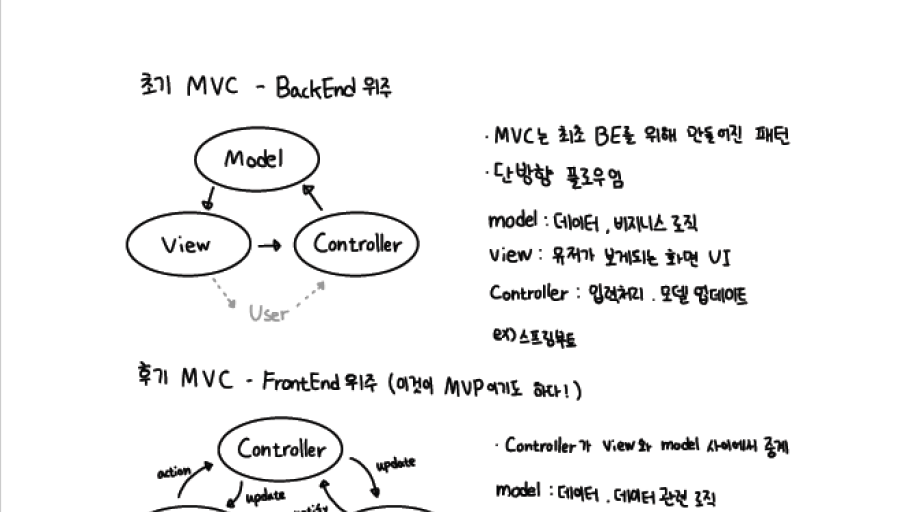 초기 MVC - BackEnd 위주
Model
View
Controller
User
· MVC는 최초 BE를 위해 만들어진 패턴
· 단방향 플로우임
model : 데이터, 비지니스 로직
view : 유저가 보게되는 화면 UI
Controller : 입력처리, 모델 업데이트
ex) 스프링부트
후기 MVC - FrontEnd 위주 (이것이 MVP이기도 하다!)
Controller
action
update
update
· Controller가 view와 model 사이에서 중계
model : 데이터, 데이터 관련 로직